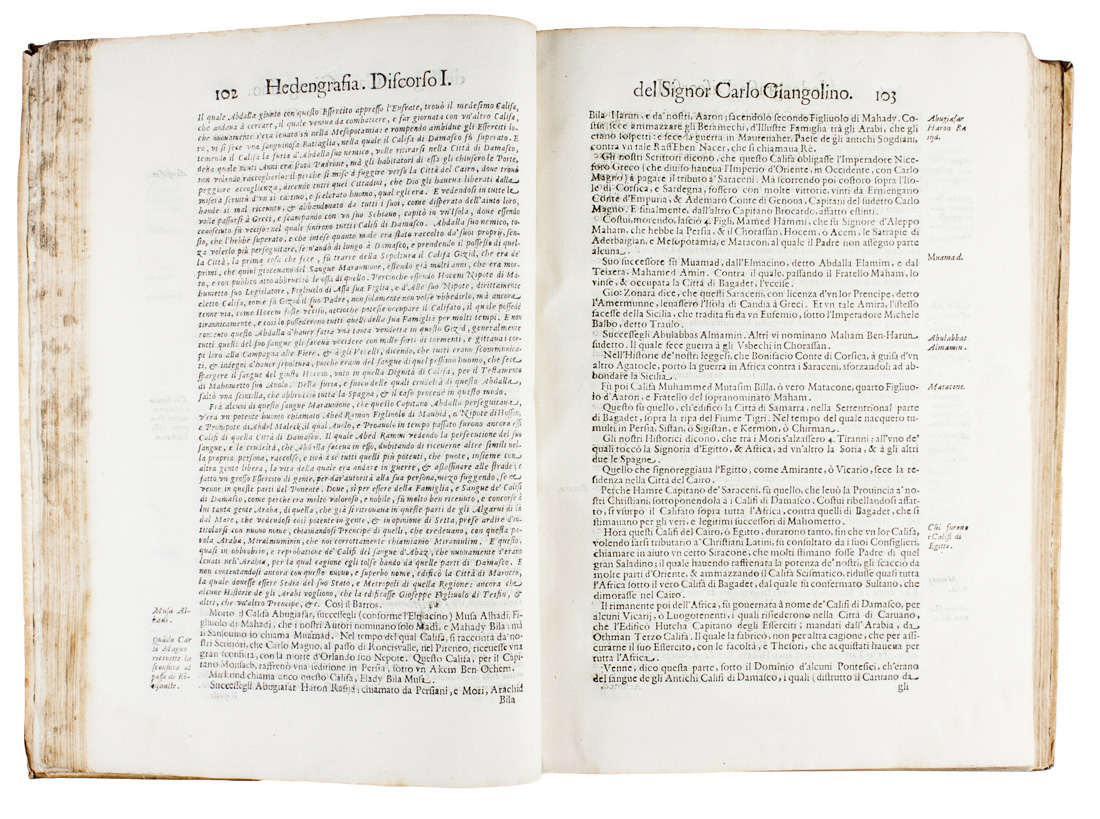 102 Hedengrafia. Discorso I.
Il quale Abdalla giunto con questo Essercito appresso l'Eufrate, trouò il medesimo Califa,
che andaua à cercare, il quale veniua da combattere, e far giornata con vn'altro Califa,
che nuouamente s'era leuato sù nella Mesopotamia; e rompendo ambidue gli Esserciti lo-
ro, vi si fece vna sanguinosa Battaglia, nella quale il Califa di Damasco fù superato. E
temendo il Califa la furia d'Abdalla suo nemico, volle ritirarsi nella Città di Damasco,
della quale tanti Anni era stato Padrone, mà gli habitatori di essa gli chiusero le Porte,
non volendo raccoglierlo; il perche si mise à fuggire verso la Città del Cairo, doue trouò
peggiore accoglienza, dicendo tutti quei Cittadini, che Dio gli haueua liberati dalla
misera seruitù d'vn sì cattiuo, e scelerato huomo, qual egli era. E vedendosi in tutte le
bande sì mal riceuuto, & abbandonato da tutti i suoi, come disperato dell'aiuto loro,
volle passarsi à Greci, e scampando con vn suo Schiauo, capitò in vn'Isola, doue essendo
conosciuto fù vcciso: nel quale finirono tutti Califi di Damasco. Abdalla suo nemico, to-
sto, che l'hebbe superato, e che intese quanto male era stato raccolto da'suoi proprij, sen-
za volerlo più perseguitare, se n'andò di lungo à Damasco, e prendendo il possesso di quel-
la Città, la prima cosa che fece, fù trarre della Sepoltura il Califa Gizid, che era de'
primi, che quiui giaceuano del Sangue Marauuone, essendo già molti anni, che era mor-
to, e con publico atto abbrucciò le ossa di quello. Percioche essendo Hocem Nipote di Ma-
humetto suo Legislatore, Figliuolo di Aiza sua Figlia, e d'Alle suo Nipote, dirittamente
eletto Califa, come fù Gizid il suo Padre, non solamente non volse vbbedirlo, mà ancora
tenne via, come Hocem fosse vcciso, acciochè potesse occupare il Califato, il quale possedè
tirannicamente, e così lo possederono tutti quelli della sua Famiglia per molti tempi. E non
contento questo Abdalla d'hauer fatta vna tanta vendetta in questo Gizid, generalmente
tutti quelli del suo sangue gli faceua vccidere con mille sorti di tormenti, e gittaua i cor-
pi loro alla Campagna alle Fiere, & à gli Vccelli, dicendo, che tutti erano scommunica-
ti, & indegni d'hauer sepoltura, poiche erano del sangue di quel pessimo huomo, che fece
spargere il sangue del giusto Hocem, vnto in quella Dignità di Califa, per il Testamento
di Mahometto suo Auolo. Della furia, e fuoco delle quali crudeltà di questo Abdalla,
saltò vna scintilla, che abbruciò tutta la Spagna, & il caso procede in questo modo.
Frà alcuni di questo sangue Marauuone, che questo Capitano Abdalla perseguitaua,
v'era vn potente huomo chiamato Abed Ramon Figliuolo di Mauhià, e Nipote di Hossin,
e Pronipote di Abdel Malech, il qual Auolo, e Proauolo in tempo passato furono ancora essi
Califi di quella Città di Damasco. Il quale Abed Ramon vedendo la persecutione del suo
sangue, e le crudeltà, che Abdalla faceua in esso, dubitando di riceuerne altre simili nel-
la propria persona, raccolse, e tirò à sè tutti quelli più potenti, che puote, insieme con
altra gente libera, la vita della quale era andare in guerre, & assassinare alle strade; e
fatto vn grosso Essercito di gente, per dar'autorità alla sua persona, mezo fuggendo, se ne
venne in queste parti del Ponente. Doue, sì per essere della Famiglia, e Sangue de' Califi
di Damasco, come perche era molto valoroso, e nobile, fù molto ben riceuuto, e concorse à
lui tanta gente Araba, di quella, che già si ritrouaua in queste parti degli Algarui di là
dal Mare, che vedendosi così potente in gente, & in opinione di Setta, prese ardire d'in-
titolarsi con nuouo nome, chiamandosi Prencipe di quelli, che credeuano, con questa pa-
rola Araba, Miralmuminin, che noi corrottamente chiamiamo Miramulin. E questo,
quasi in obbrobrio, e reprobatione de' Califi del sangue d'Abaz, che nuouamente s'erano
leuati nell'Arabia, per la qual cagione egli tosse bando da quelle parti di Damasco. E
non contentandosi ancora con questo nuouo, e superbo nome, edificò la Città di Marocco,
la quale douesse essere Sedia del suo Stato, e Metropoli di quella Regione; ancora che
alcune Historie de gli Arabi vogliono, che la edificasse Gioseppe Figliuolo di Tesfin, &
altri, che vn'altro Prencipe, &c. Così il Barros.
Musa Al-
hadi.
Morto il Califa Abugiafar, succesegli (conforme l'Elmacino) Musa Alhadi. Fi-
gliuolo di Mahadi, che i nostri Autori nominano solo Madi, e Mahady Bila; mà
il Sansouino lo chiama Muamad. Nel tempo del qual Califa, si racconta da' no-
stri Scrittori, che Carlo Magno, al passo di Roncisvalle, nel Pireneo, riceuesse vna
gran sconfitta, con la morte d'Orlando suo Nepote. Questo Califa, per il Capi-
tano Monsach, raffrenò vna seditione in Persia, sotto vn Akem Ben-Ochem.
Quãdo Car
lo Magno
riceuette la
sconfitta al
passo di Rõ-
cisualle.
Mirkond chiama anco questo Califa, Elady Bila Musa.
Successegli Abugiafar Haron Rasijd; chiamato da Persiani, e Mori, Arachid
Bila
del Signor Carlo Giangolino. 103
Bila Harun, e da' nostri, Aaron; facendolo secondo Figliuolo di Mahady. Co-
stui fece ammazzare gli Beramechi, d'Illustre Famiglia trà gli Arabi, che gli
erano sospetti: e fece la guerra in Maurenaher, Paese de gli antichi Sogdiani,
contra vn tale Raff Eben Nacer, che si chiamaua Rè.
Abugiafar
Haron Ra
sijd.
Gli nostri Scrittori dicono, che questo Califa obligasse l'Imperadore Nice-
foro Greco (che diuise haueua l'Imperio d'Oriente, in Occidente, con Carlo
Magno) à pagare il tributo à' Saraceni. Mà scorrendo poi costoro sopra l'Iso-
le di Corsica, e Sardegna, fossero con molte vittorie, vinti da Ermengario
Conte d'Empuria, & Ademaro Conte di Genoua, Capitani del sudetto Carlo
Magno. E finalmente, dall'altro Capitano Brocardo, affatto estinti.
Costui, morendo, lasciò 4. Figli, Mamed Hammi, che fù Signore d'Aleppo
Maham, che hebbe la Persia, & il Chorassan, Hocem, ò Acem, le Satrapie di
Aderbaigian, e Mesopotamia, e Matacon, al quale il Padre non assegnò parte
alcuna.
Suo successore fù Muamad, dall'Elmacino, detto Abdalla Elamim, e dal
Teixera, Mahamed Amin. Contra il quale, passando il Fratello Maham, lo
vinse, & occupata la Città di Bagadet, l'vccise.
Muamad.
Gio: Zonara dice, che questi Saraceni, con licenza d'vn lor Prencipe, detto
l'Amermunne, leuassero l'Isola di Candia à Greci. Et vn tale Amira, l'istesso
facesse della Sicilia, che tradita fù da vn Eufemio, sotto l'Imperadore Michele
Balbo, detto Traulo.
Successegli Abulabbas Almamin. Altri vi nominano Maham Ben-Harun
sudetto. Il quale fece guerra à gli Vsbechi in Chorassan.
Abulabbas
Almamin.
Nell'Historie de' nostri leggesi, che Bonifacio Conte di Corsica, à guisa d'vn
altro Agatocle, portò la guerra in Africa contra i Saraceni, sforzandoli ad ab-
bondare la Sicilia.
Fù poi Califa Muhammed Mutasim Billa, ò vero Matacone, quarto Figliuo-
lo d'Aaron, e Fratello del sopranominato Maham.
Matacone.
Questo fù quello, ch'edificò la Città di Samarra, nella Settentrional parte
di Bagadet, sopra la ripa del Fiume Tigri. Nel tempo del quale nacquero tu-
multi in Persia, Sistan, ò Sigistan, e Kermon, ò Chirman.
Gli nostri Historici dicono, che trà i Mori s'alzassero 4. Tiranni: all'vno de'
quali toccò la Signoria d'Egitto, & Africa, ad vn'altro la Soria, & à gli altri
due le Spagne.
Quello che signoreggiaua l'Egitto, come Amirante, ò Vicario, fece la re-
sidenza nella Città del Cairo.
Perche Hamre Capitano de' Saraceni, fù quello, che leuò la Prouincia a' no-
stri Christiani, sottoponendola à i Califi di Damasco. Costui ribellandosi affat-
to, si vsurpò il Califato sopra tutta l'Africa, contra quelli di Bagadet, che si
stimauano per gli veri, e legitimi successori di Mahometto.
Horà questi Califi del Cairo, ò Egitto, durarono tanto, fin che vn lor Califa,
volendo farsi tributario a' Christiani Latini, fù consultato da i suoi Consiglieri,
chiamare in aiuto vn certo Siracone, che molti stimano fosse Padre di quel
gran Saladino; il quale hauendo raffrenata la potenza de' nostri, gli scacciò da
molte parti d'Oriente, & ammazzando il Califa Scismatico, ridusse quasi tutta
l'Africa sotto il vero Califa di Bagadet, dal quale fù confermato Sultano, che
dimorasse nel Cairo.
Chi furono
i Califi di
Egitto.
Il rimanente poi dell'Africa, fù gouernata à nome de' Califi di Damasco, per
alcuni Vicarij, ò Luogotenenti, i quali risiederono nella Città di Caruano,
che l'Edificò Hutcha Capitano degli Esserciti; mandati dall'Arabia, da
Othman Terzo Califa. Il quale la fabricò, non per altra cagione, che per assi-
curarne il suo Essercito, con le facoltà, e Thesori, che acquistati haueua per
tutta l'Africa.
Venne, dico questa parte, sotto il Dominio d'alcuni Pontefici, ch'erano
del sangue de gli Antichi Califi di Damasco, i quali (distrutto il Caruano da
gli